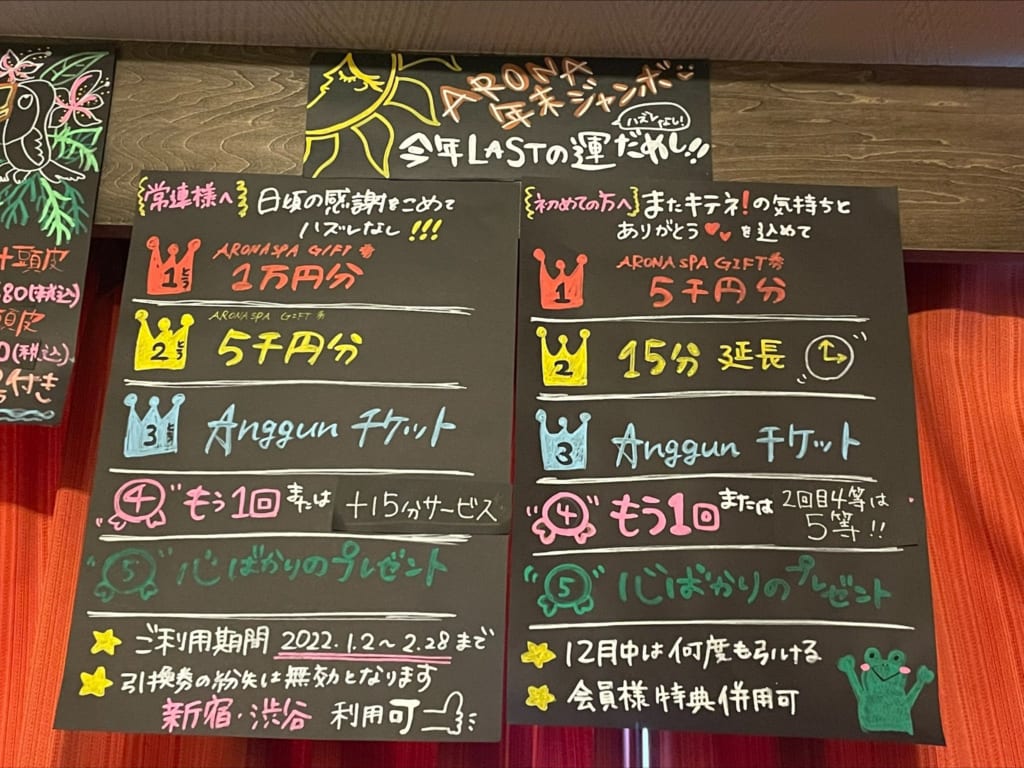 ARONA
年末ジャンボ
ハズレなし!
今年LASTの運だめし!!
十頭皮
80(税込)
頭皮
0(税込)
付き
常連様へ 日頃の感謝をこめて
ハズレなし!!!
1とう ARONA SPA GIFT券
1万円分
2とう ARONA SPA GIFT券
5千円分
3とう Anggun チケット
4 もう1回 または +15分サービス
5 心ばかりのプレゼント
ご利用期間 2022.1.2~2.28まで
引換券の紛失は無効となります
新宿・渋谷 利用可
初めての方へ またキテネ!の気持ちと
ありがとう を込めて
1 ARONA SPA GIFT券
5千円分
2 15分 延長
3 Anggun チケット
4 もう1回 または 2回目4等は
5等!!
5 心ばかりのプレゼント
12月中は何度も引ける
会員様特典併用可